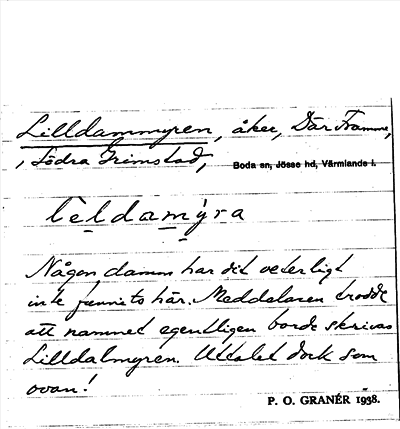 Lilldammyren, åker, Där Framme,
i Södra Grimstad,
Boda sn, Jösse hd, Värmlands l.
lìldamýra
Någon damm har det veterligt
inte funnits här. Meddelaren trodde
att namnet egentligen borde skrivas
Lilldalmyren. Uttalet dock som
ovan!
P. O. GRANÉR 1938.